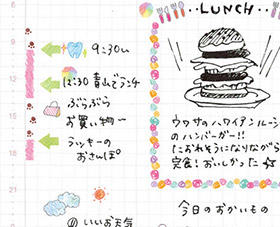 6
9
9:30 レ
12
12:30 青山でランチ
ぶらぶら
お買い物〜
15
ラッキーの
おさんぽ
18
21
いいお天気
‥LUNCH‥
ウワサのハワイアンルーン
のハンバーガー!!
たおれそうになりながら
完食!おいしかった☆
今日のおかいもの